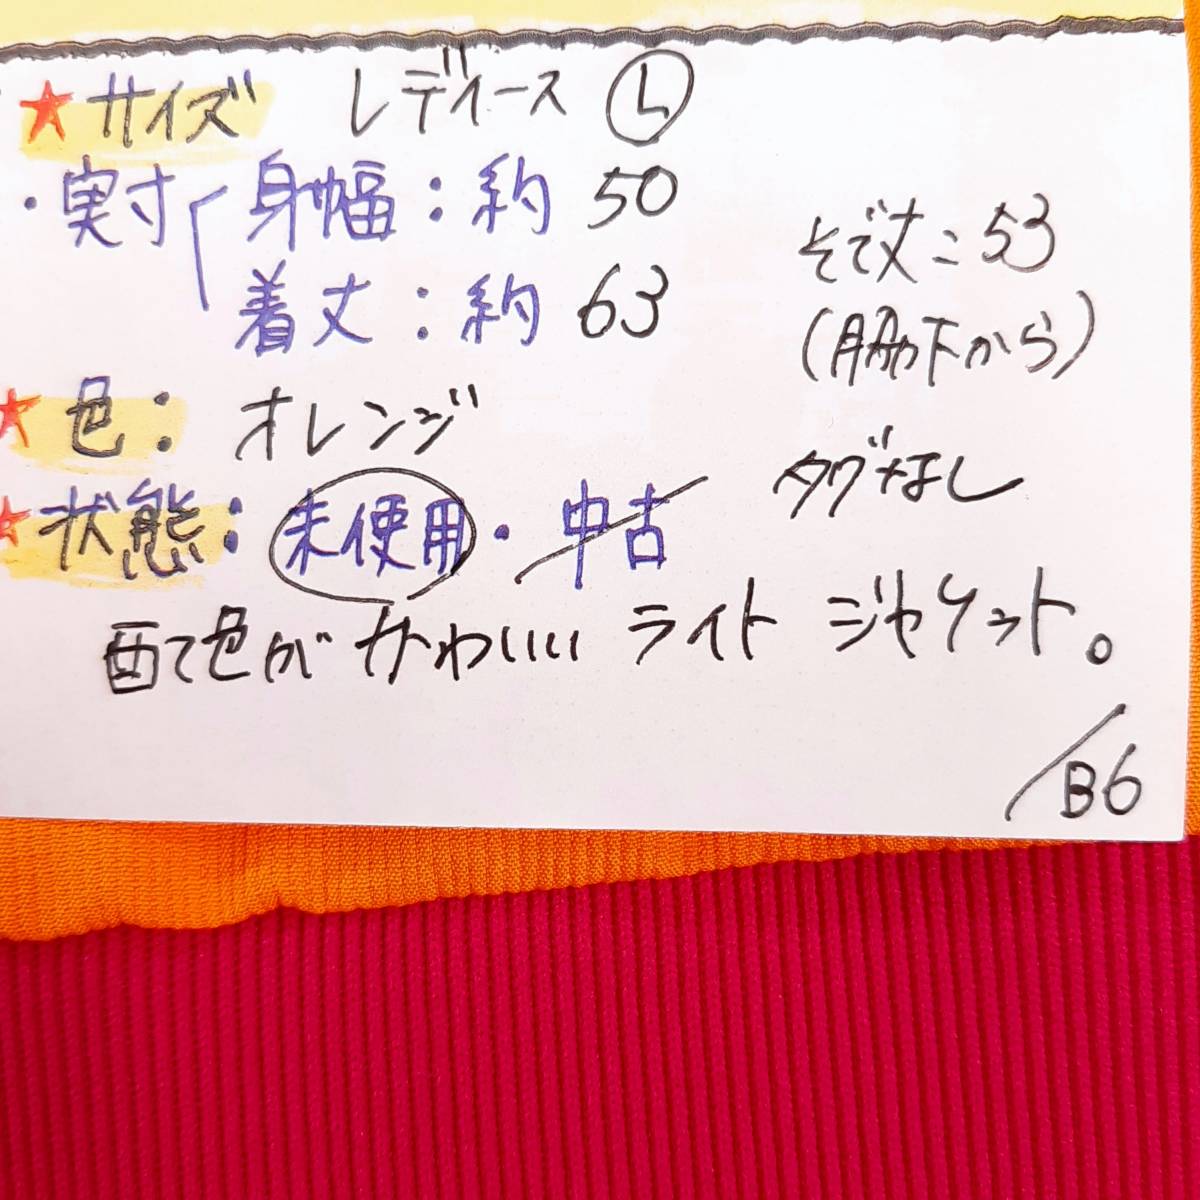 ★サイズ レディース Ⓛ
・実寸 身幅：約 50
着丈：約 63
そで丈：53
(脇下から)
★色：オレンジ
タグなし
★状態：未使用・中古
配色がかわいい ライト ジャケット。
/B6